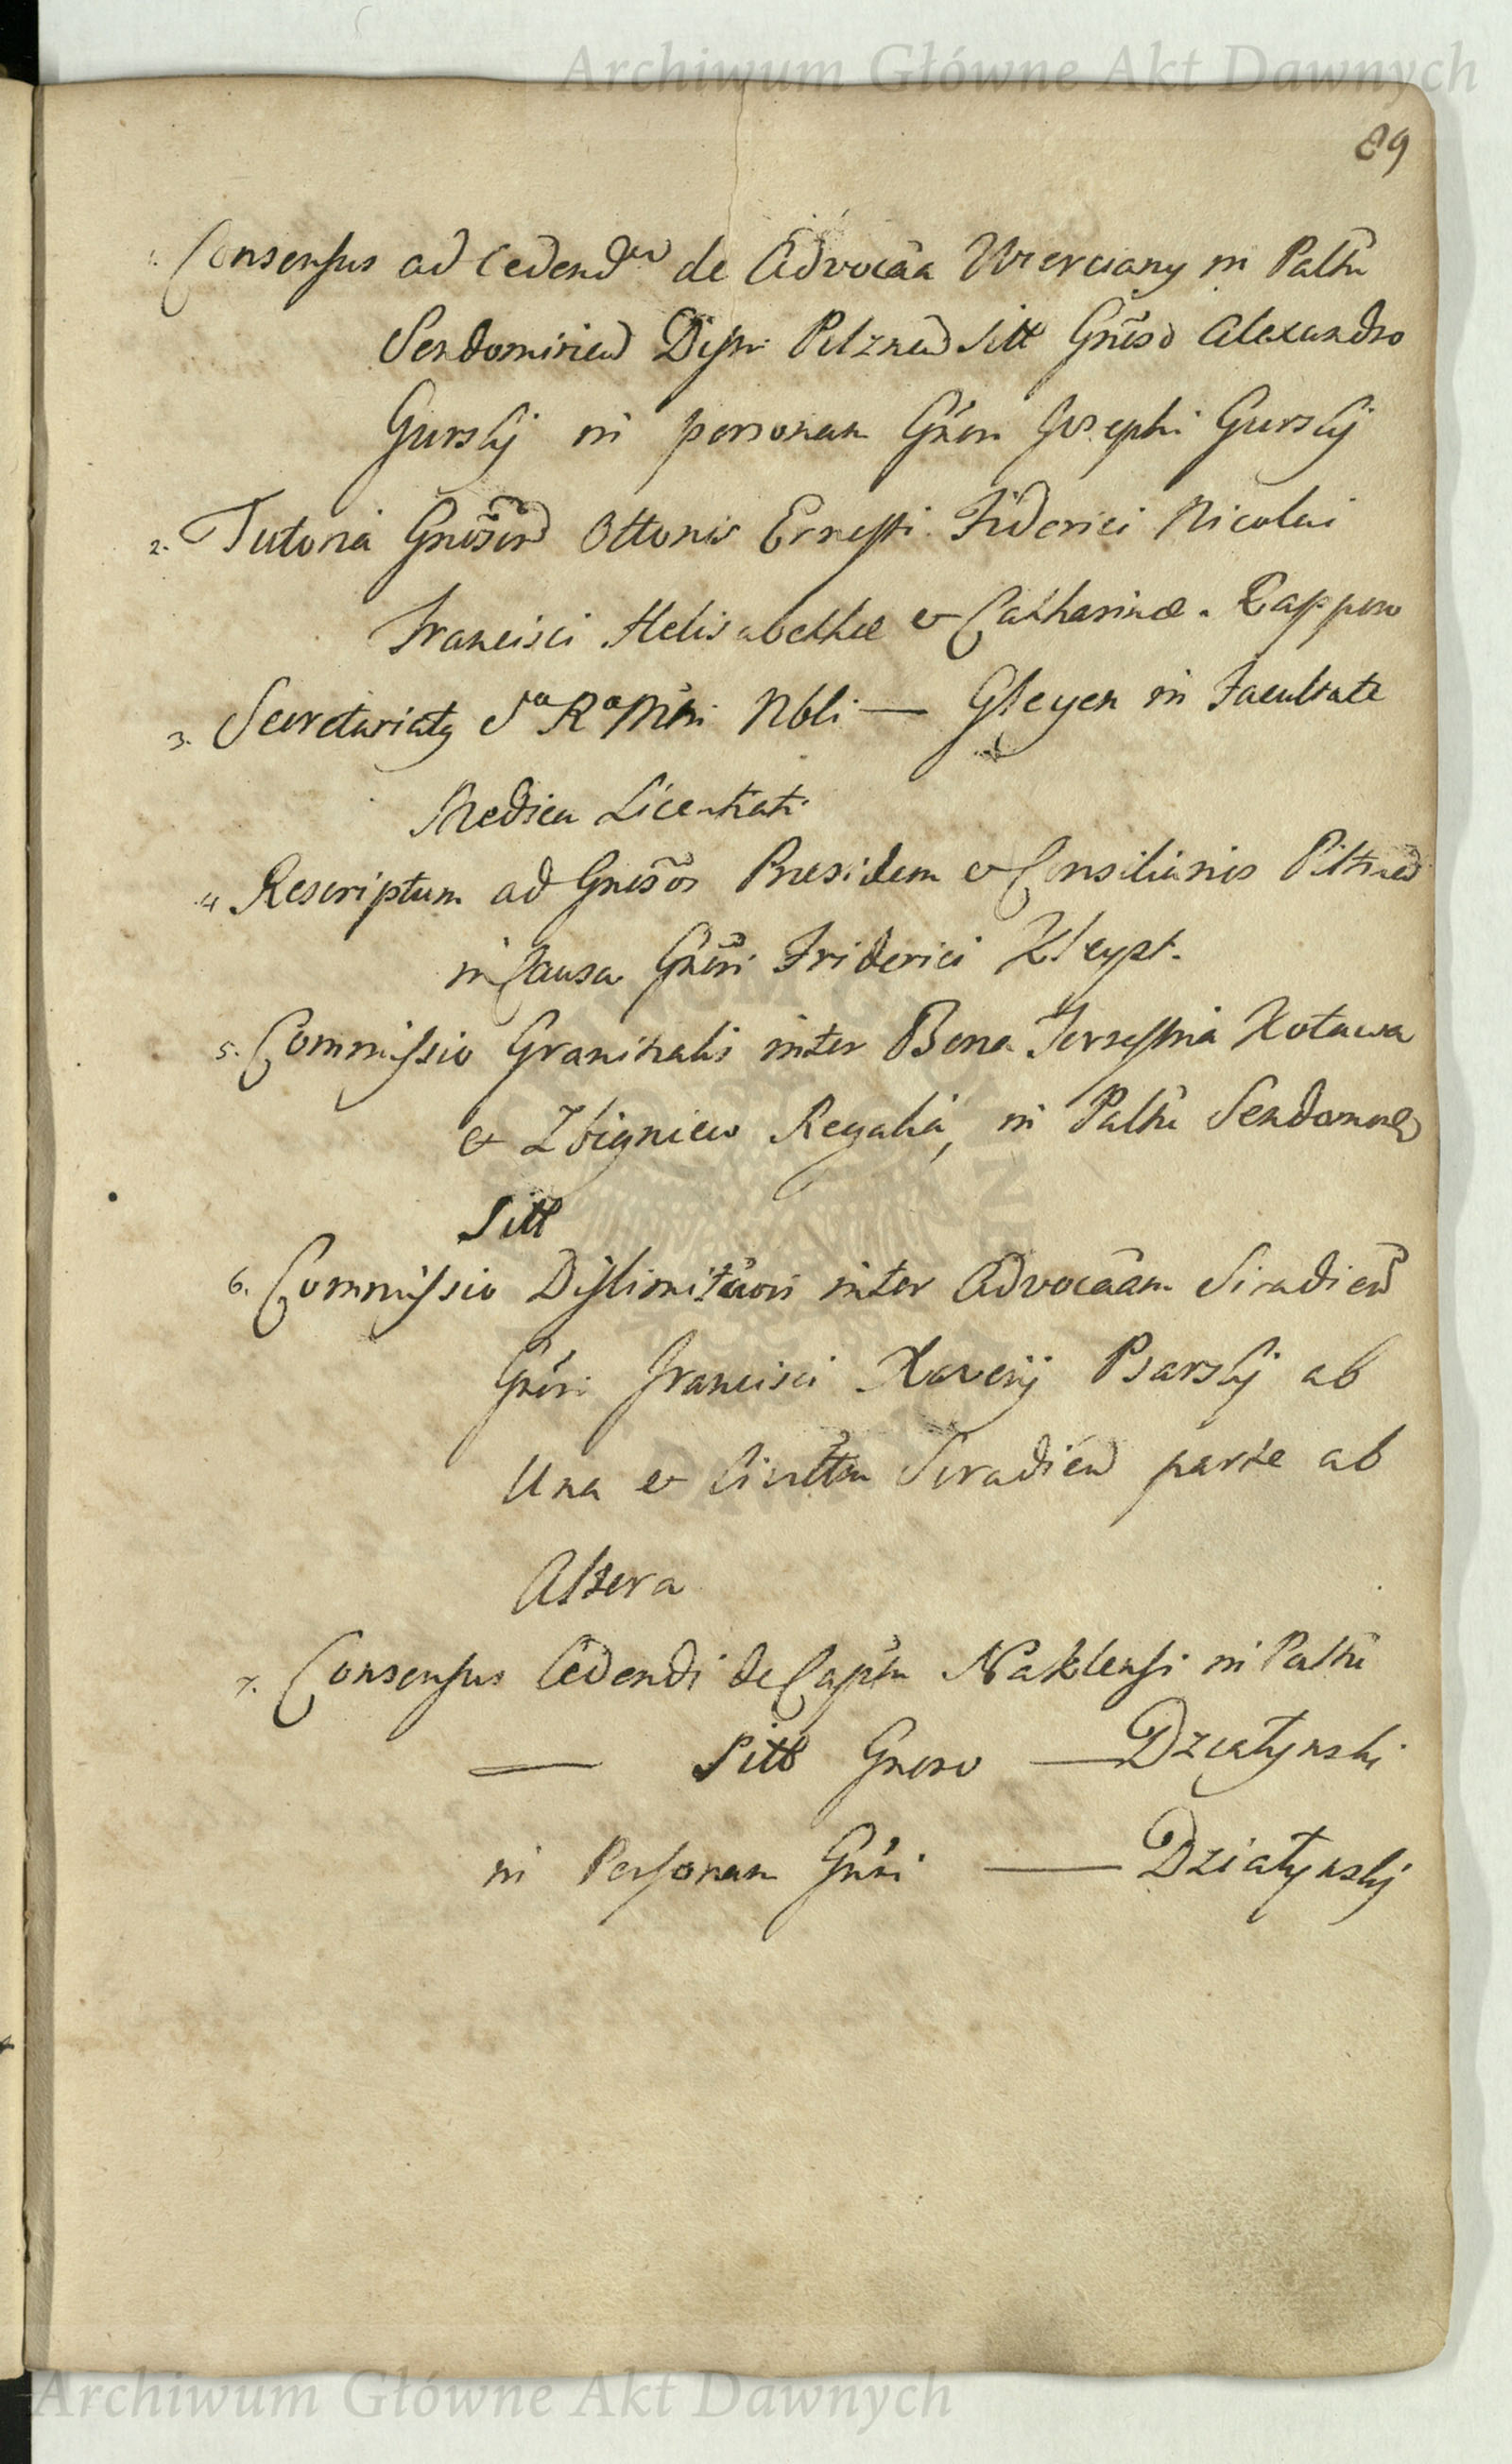 Archiwum Główne Akt Dawnych
89
1. Consensus ad cedendum de Advocãa Wierciany in Paltũ
Sendomirien Distr Pilznen Sitt Gnẽso Alexandro
Gurskj in personam Gñeri Josephi Gurskj
2. Tutoria Gnẽsor Ottonis Ernesti Friderici Nicolai
Francisci Helisabethæ et Catharinæ
3. Secretariatq Sᵃ Rᵃ Mtti Nbli — Gleyen in Facultate
Medica Licentiati
4 Rescriptum ad Gnẽsos Presidem et Consiliarios Piltinen
in Causa Gñeri Friderici Kleyst.
5. Commissio Granitialis inter Bona Terrestria Kotowa
et Zbigniew Regalia, in Paltũ Sendomir
Sitt
6. Commissio Dislimitãois inter Advocãam Siradien
Gñeri Francisci Xaverij Psarskj ab
Una et Civittm Siradien parte ab
Altera
7. Consensus Cedendi de Captu Naklensi in Paltũ
— Sitt Gneso — Dziatynski
in Personam Gñri — Dziatynskj
Archiwum Główne Akt Dawnych